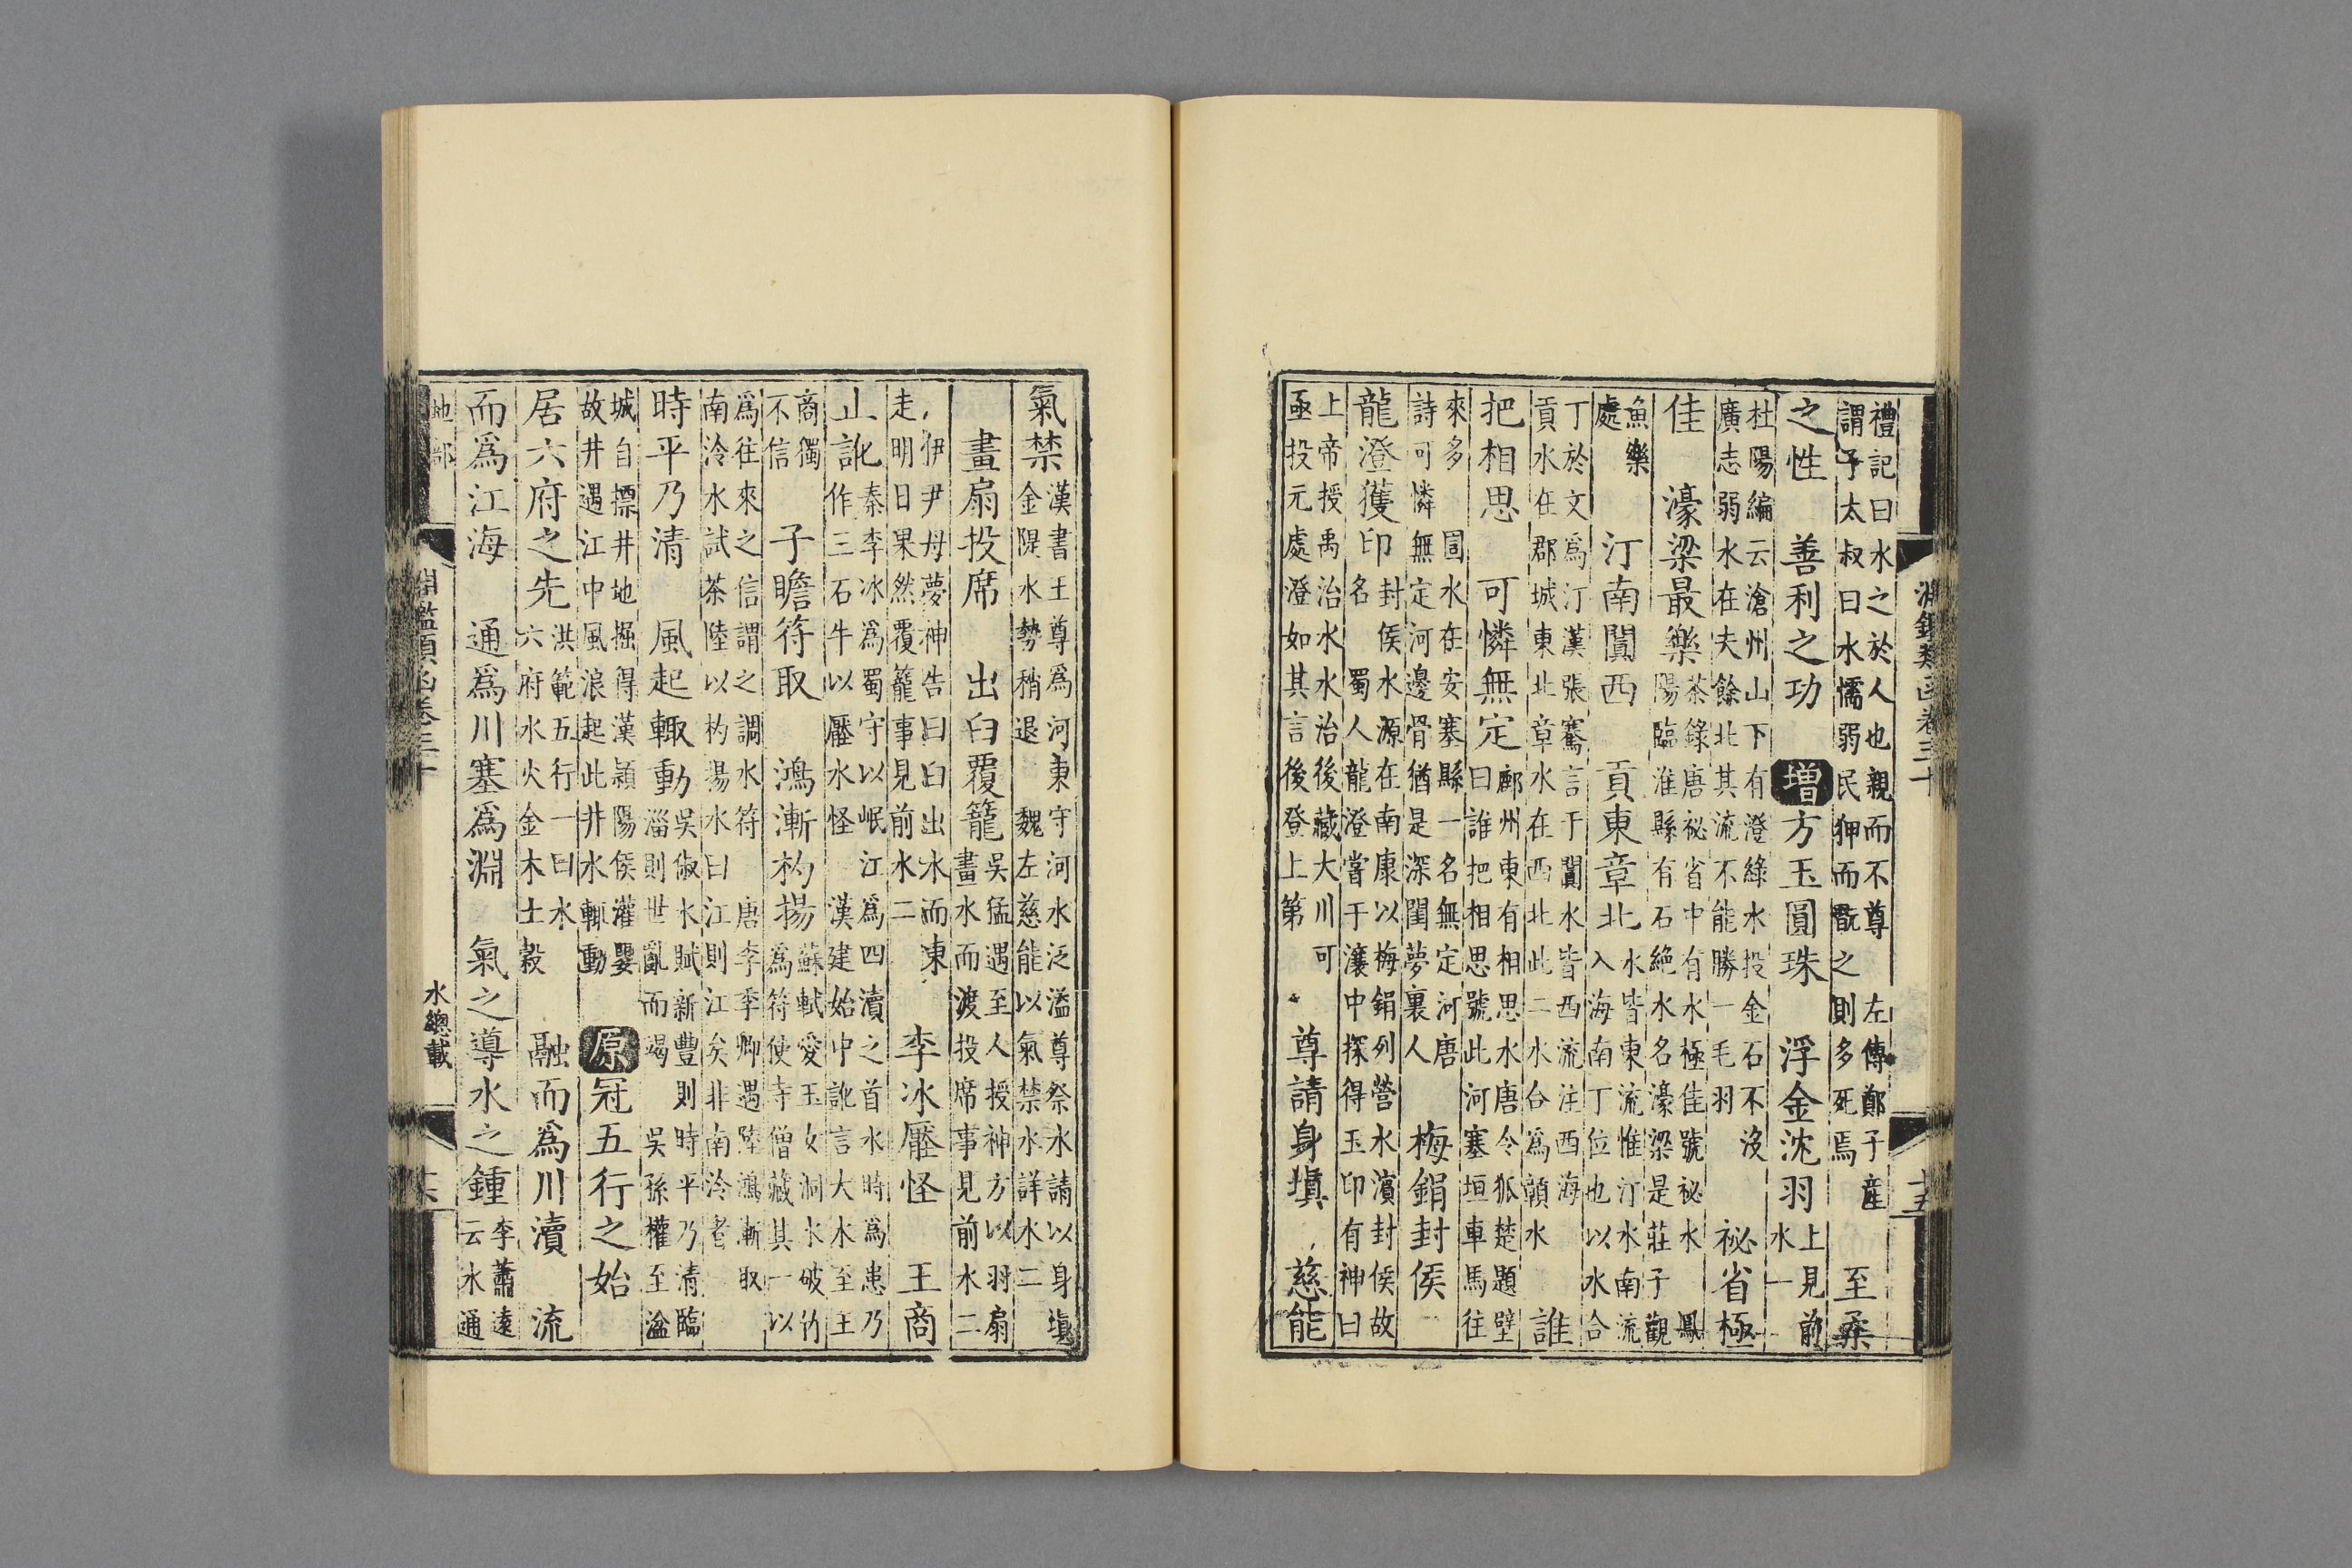 淵鑑類函卷三十 十五
禮記曰水之於人也親而不尊 左傳鄭子産謂子太叔曰水懦弱民狎而翫之則多死焉 至柔
之性 善利之功 增方玉圓珠 浮金沈羽 上見前水一
杜陽編云滄州山下有澄綠水投金石不沒 廣志弱水在夫餘北其流不能勝一毛羽 祕省極
佳 濠梁最樂 茶錄唐祕省中有水極佳號祕水 鳳陽臨淮縣有石絕水名濠梁是莊子觀
魚樂處 汀南闐西 貢東章北 水皆東流惟汀水南流入海南丁位也以水合
丁於文爲汀漢張騫言于闐水皆西流注西海 貢水在郡城東北章水在西北此二水合爲贑水 誰
把相思 可憐無定 鄜州東有相思水唐令狐楚題壁曰誰把相思號此河塞垣車馬往
來多 圁水在安塞縣一名無定河唐詩可憐無定河邊骨猶是深閨夢裏人 梅鋗封侯
龍澄獲印 封侯水源在南康以梅鋗列營水濱封侯故名 蜀人龍澄嘗于瀼中探得玉印有神曰
上帝授禹治水水治後藏大川可亟投元處澄如其言後登上第 尊請身塡 慈能
氣禁 漢書王尊爲河東守河水泛溢尊祭水請以身塡金隄水勢稍退 魏左慈能以氣禁水詳水二
畫扇投席 出臼覆籠 吳猛遇至人授神方以羽扇畫水而渡投席事見前水二
伊尹母夢神告曰臼出水而東走明日果然覆籠事見前水二 李冰壓怪 王商
止訛 秦李冰爲蜀守以岷江爲四瀆之首水時爲患乃作三石牛以壓水怪 漢建始中訛言大水至王
商獨不信 子瞻符取 鴻漸杓揚 蘇軾愛玉女洞水破竹爲符使寺僧藏其一以
爲往來之信謂之調水符 唐李季卿遇陸鴻漸取南泠水試茶陸以杓揚水曰江則江矣非南泠者
時平乃清 風起輒動 吳俶水賦新豐則時平乃清臨淄則世亂而竭 吳孫權至湓
城自摽井地掘得漢潁陽侯灌嬰故井遇江中風浪起此井水輒動 原冠五行之始
居六府之先 洪範五行一曰水六府水火金木土穀 融而爲川瀆 流
而爲江海 通爲川塞爲淵 氣之導水之鍾 李蕭遠云水通
地部 淵鑑類函卷三十 水總載